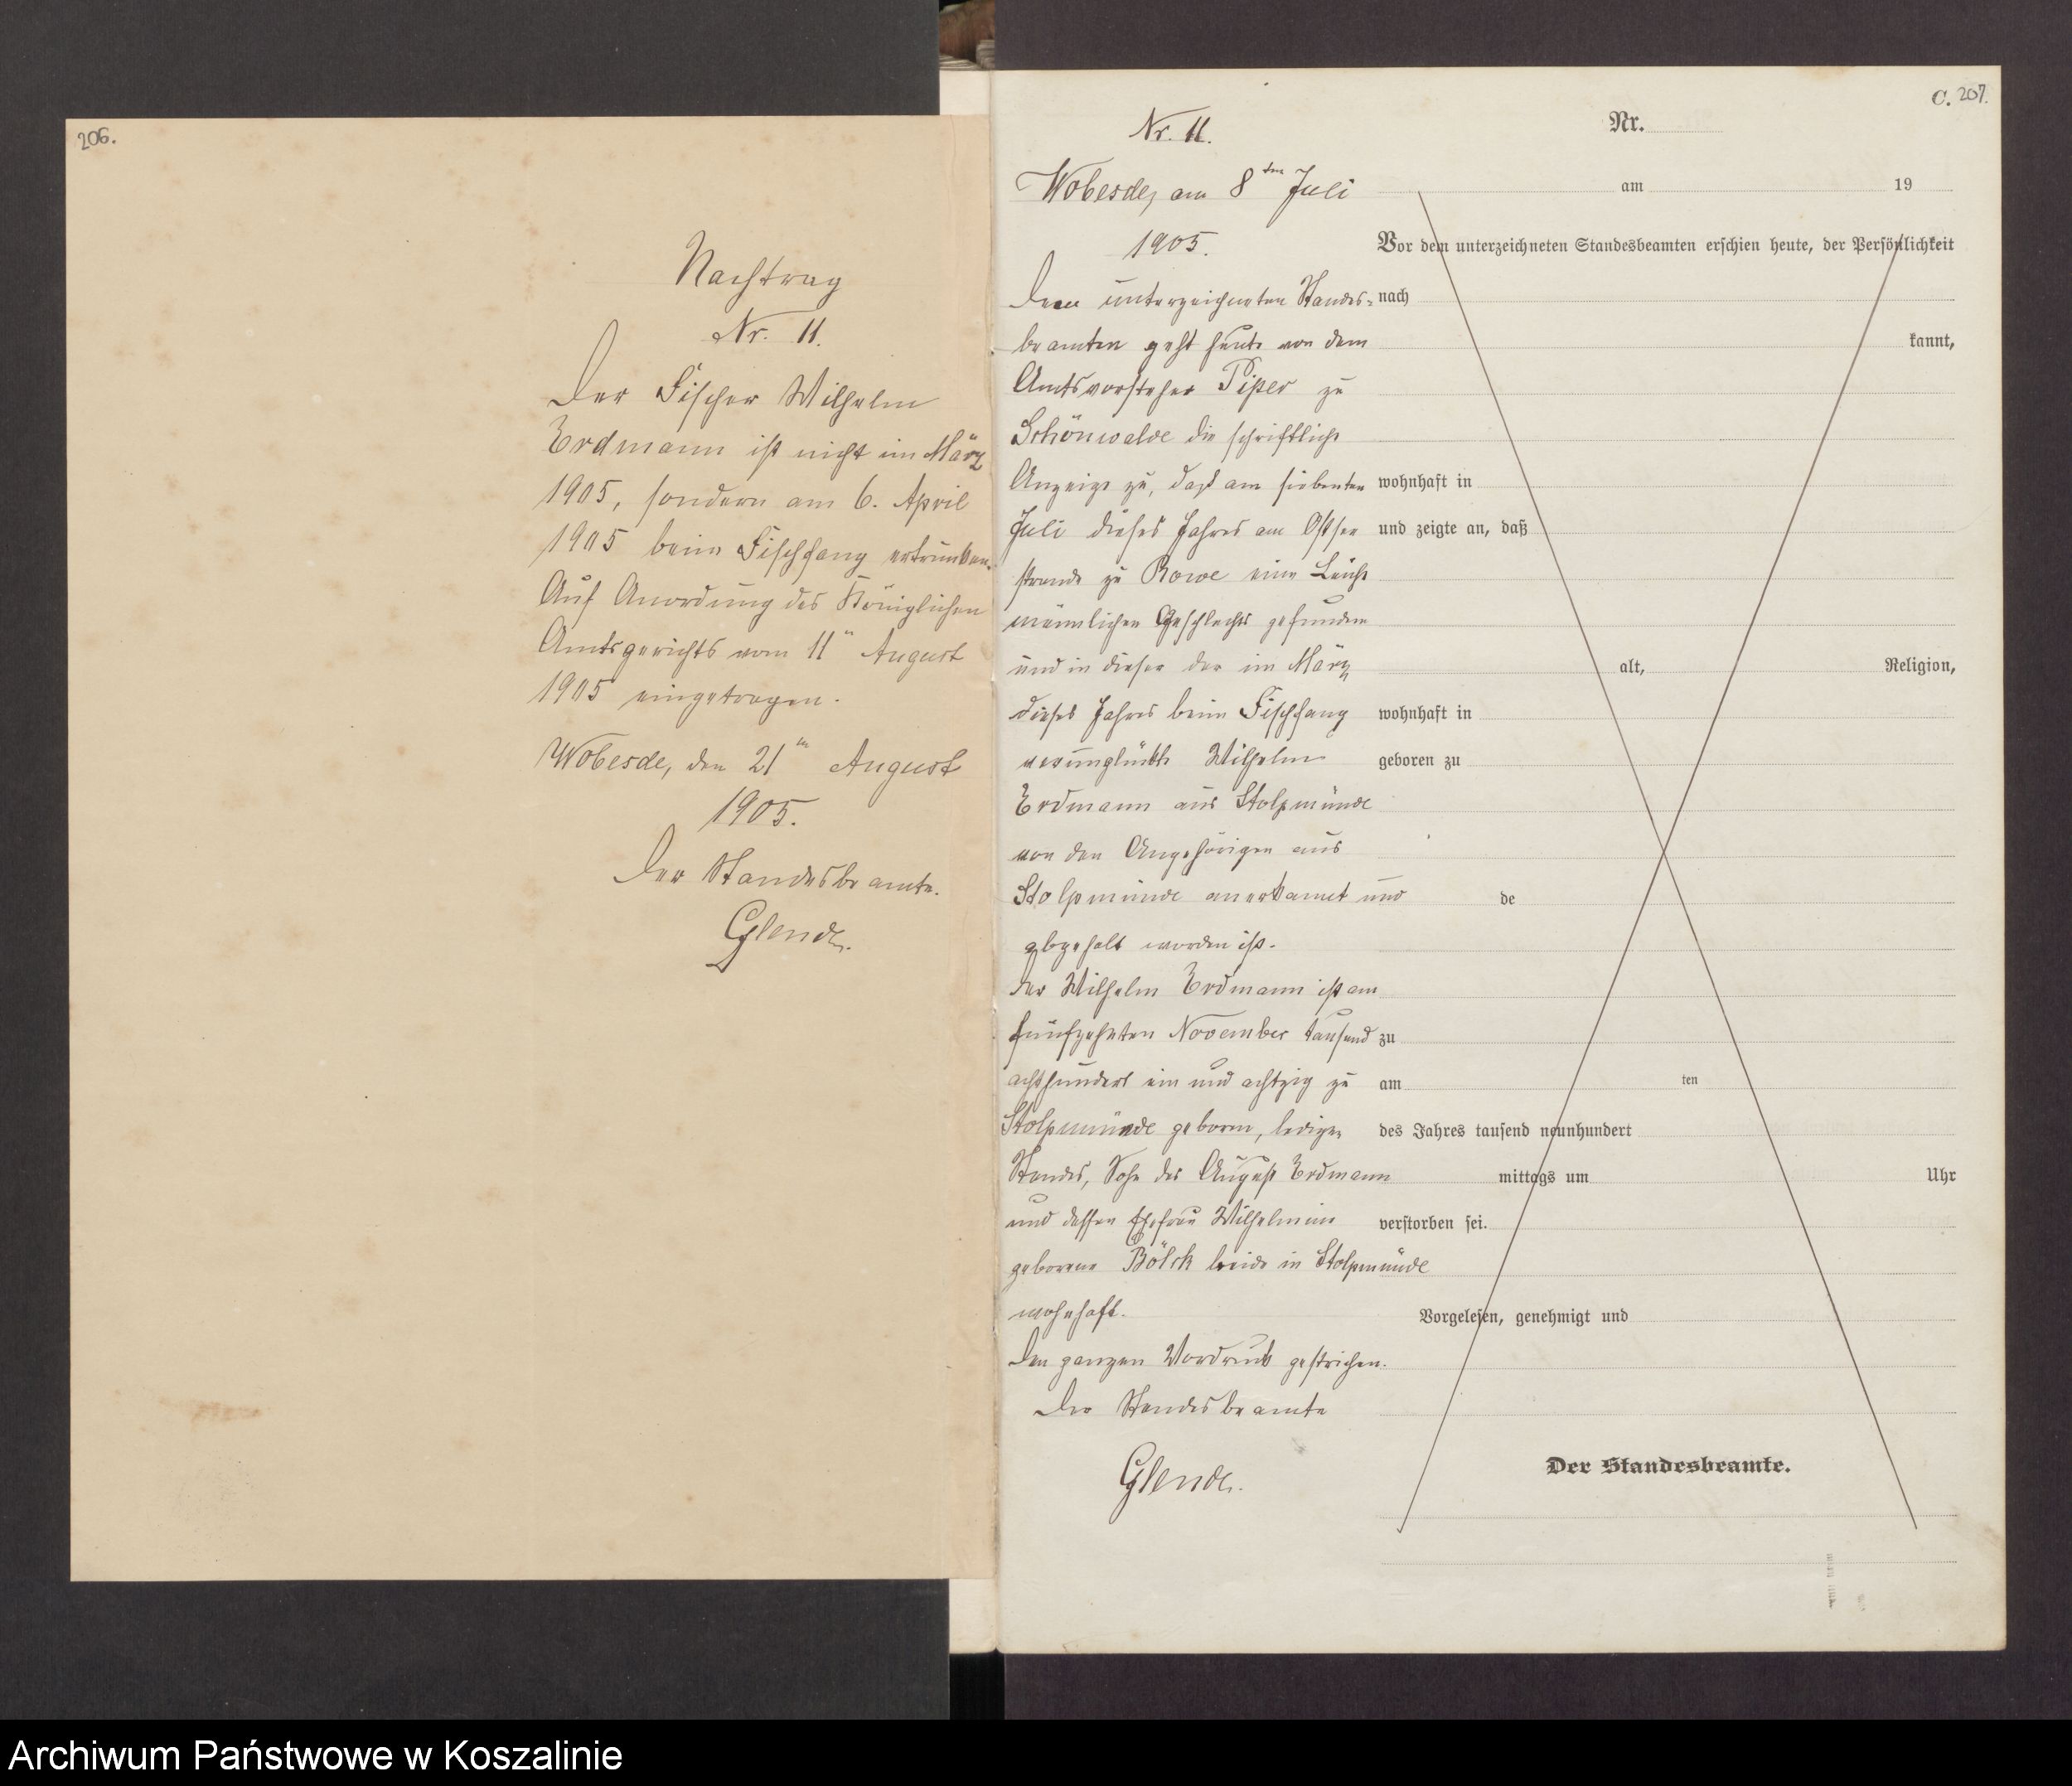 206.
Nachtrag
Nr. 11.
Der Fischer Wilhelm
Erdmann ist nicht im März
1905, sondern am 6. April
1905 beim Fischfang ertrunken.
Auf Anordnung des Königlichen
Amtsgerichts vom 11ten August
1905 eingetragen.
Wobesde, den 21ten August
1905.
Der Standesbeamte.
Glende.
C. 207.
Nr. 11.
Wobesde, am 8ten Juli
1905.
Dem unterzeichneten Standes-
beamten geht heute von dem
Amtsvorsteher Piper zu
Schönwalde die schriftliche
Anzeige zu, daß am siebenten
Juli dieses Jahres am Ostsee
strande zu Rowe eine Leiche
männlichen Geschlechts gefunden
und in dieser der im März
dieses Jahres beim Fischfang
verunglückte Wilhelm
Erdmann aus Stolpmünde
von den Angehörigen aus
Stolpmünde anerkannt und
abgeholt worden ist.
Der Wilhelm Erdmann ist am
fünfzehnten November tausend
achthundert ein und achtzig zu
Stolpmünde geboren, ledigen
Standes, Sohn des August Erdmann
und dessen Ehefrau Wilhelmine
geborene Bölck beide in Stolpmünde
wohnhaft.
Den ganzen Vordruck gestrichen.
Der Standesbeamte
Glende.
Nr.
am 19
Vor dem unterzeichneten Standesbeamten erschien heute, der Persönlichkeit
nach
kannt,
wohnhaft in
und zeigte an, daß
alt, Religion,
wohnhaft in
geboren zu
de
zu
am ten
des Jahres tausend neunhundert
mittags um Uhr
verstorben sei.
Vorgelesen, genehmigt und
Der Standesbeamte.
Archiwum Państwowe w Koszalinie